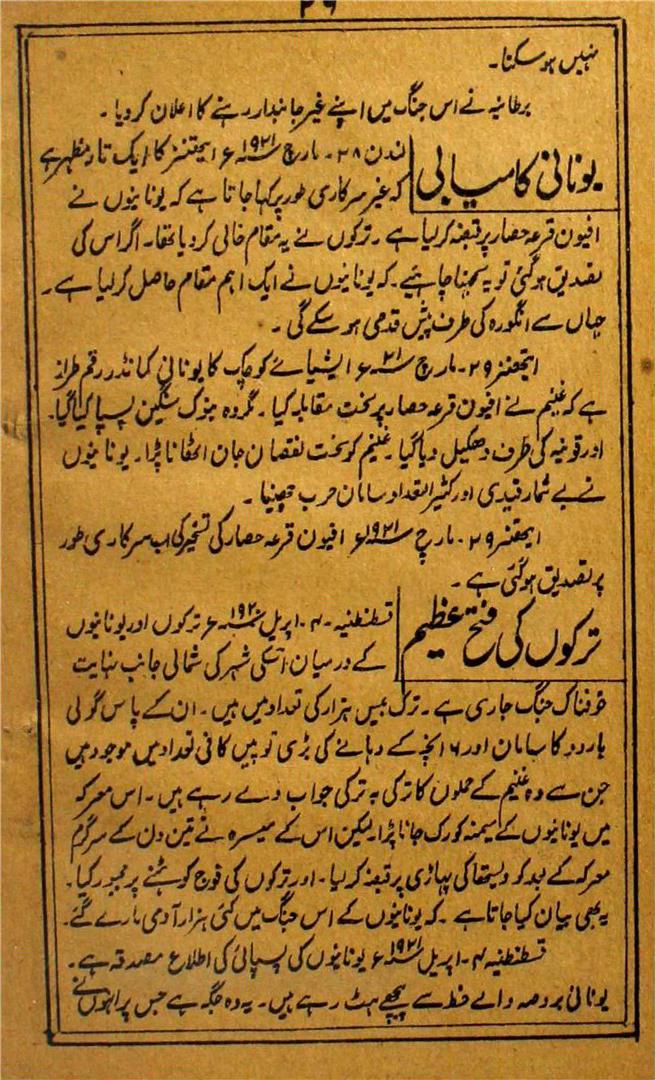 ۲۶
نہیں ہو سکتا۔
برطانیہ نے اس جنگ میں اپنے غیر جانبدار رہنے کا اعلان کر دیا۔
یونانی کامیابی
لندن ۲۸۔ مارچ ۱۹۲۱ء ایتھنز کا ایک تار مظہر ہے
کہ غیر سرکاری طور پر کہا جاتا ہے کہ یونانیوں نے
افیون قرعہ حصار پر قبضہ کر لیا ہے۔ ترکوں نے یہ مقام خالی کر دیا تھا۔ اگر اس کی
تصدیق ہو گئی تو یہ سمجھنا چاہئیے۔ کہ یونانیوں نے ایک اہم مقام حاصل کر لیا ہے۔
جہاں سے انگورہ کی طرف پیش قدمی ہو سکے گی۔
ایتھنز ۲۹۔ مارچ ۲۱ء ایشیائے کوچک کا یونانی کمانڈر رقم طراز
ہے کہ غنیم نے افیون قرعہ حصار پر سخت مقابلہ کیا۔ مگر وہ بنوک سنگین پسپا کیا گیا۔
اور قونیہ کی طرف دھکیل دیا گیا۔ غنیم کو سخت نقصان جان اٹھانا پڑا۔ یونانیوں
نے بے شمار قیدی اور کثیر التعداد سامان حرب چھینا۔
ایتھنز ۲۹۔ مارچ ۱۹۲۱ء افیون قرعہ حصار کی تسخیر کی اب سرکاری طور
پر تصدیق ہو گئی ہے۔
ترکوں کی فتح عظیم
قسطنطنیہ۔ ۴۔ اپریل ۱۹۲۰ء ترکوں اور یونانیوں
کے درمیان اسکی شہر کی شمالی جانب نہایت
خوفناک جنگ جاری ہے۔ ترک بیس ہزار کی تعداد میں ہیں۔ ان کے پاس گولی
بارود کا سامان اور ۶ انچہ کے دہانے کی بڑی توپیں کافی تعداد میں موجود ہیں
جن سے وہ غنیم کے حملوں کا ترکی بہ ترکی جواب دے رہے ہیں۔ اس معرکہ
میں یونانیوں کے میمنہ کو رک جانا پڑا۔ لیکن اس کے میسرہ نے تین دن کے سرگرم
معرکہ کے بعد کی پہاڑی پر قبضہ کر لیا۔ اور ترکوں کی فوج کو ہٹنے پر مجبور کیا۔
یہ بھی بیان کیا جاتا ہے۔ کہ یونانیوں کے اس جنگ میں کئی ہزار آدمی مارے گئے۔
قسطنطنیہ ۴۔ اپریل ۱۹۲۱ء یونانیوں کی پسپائی کی اطلاع مصدقہ ہے۔
یونانی بروصہ والے خط سے پیچھے ہٹ رہے ہیں۔ یہ وہ جگہ ہے جس پر انہوں نے